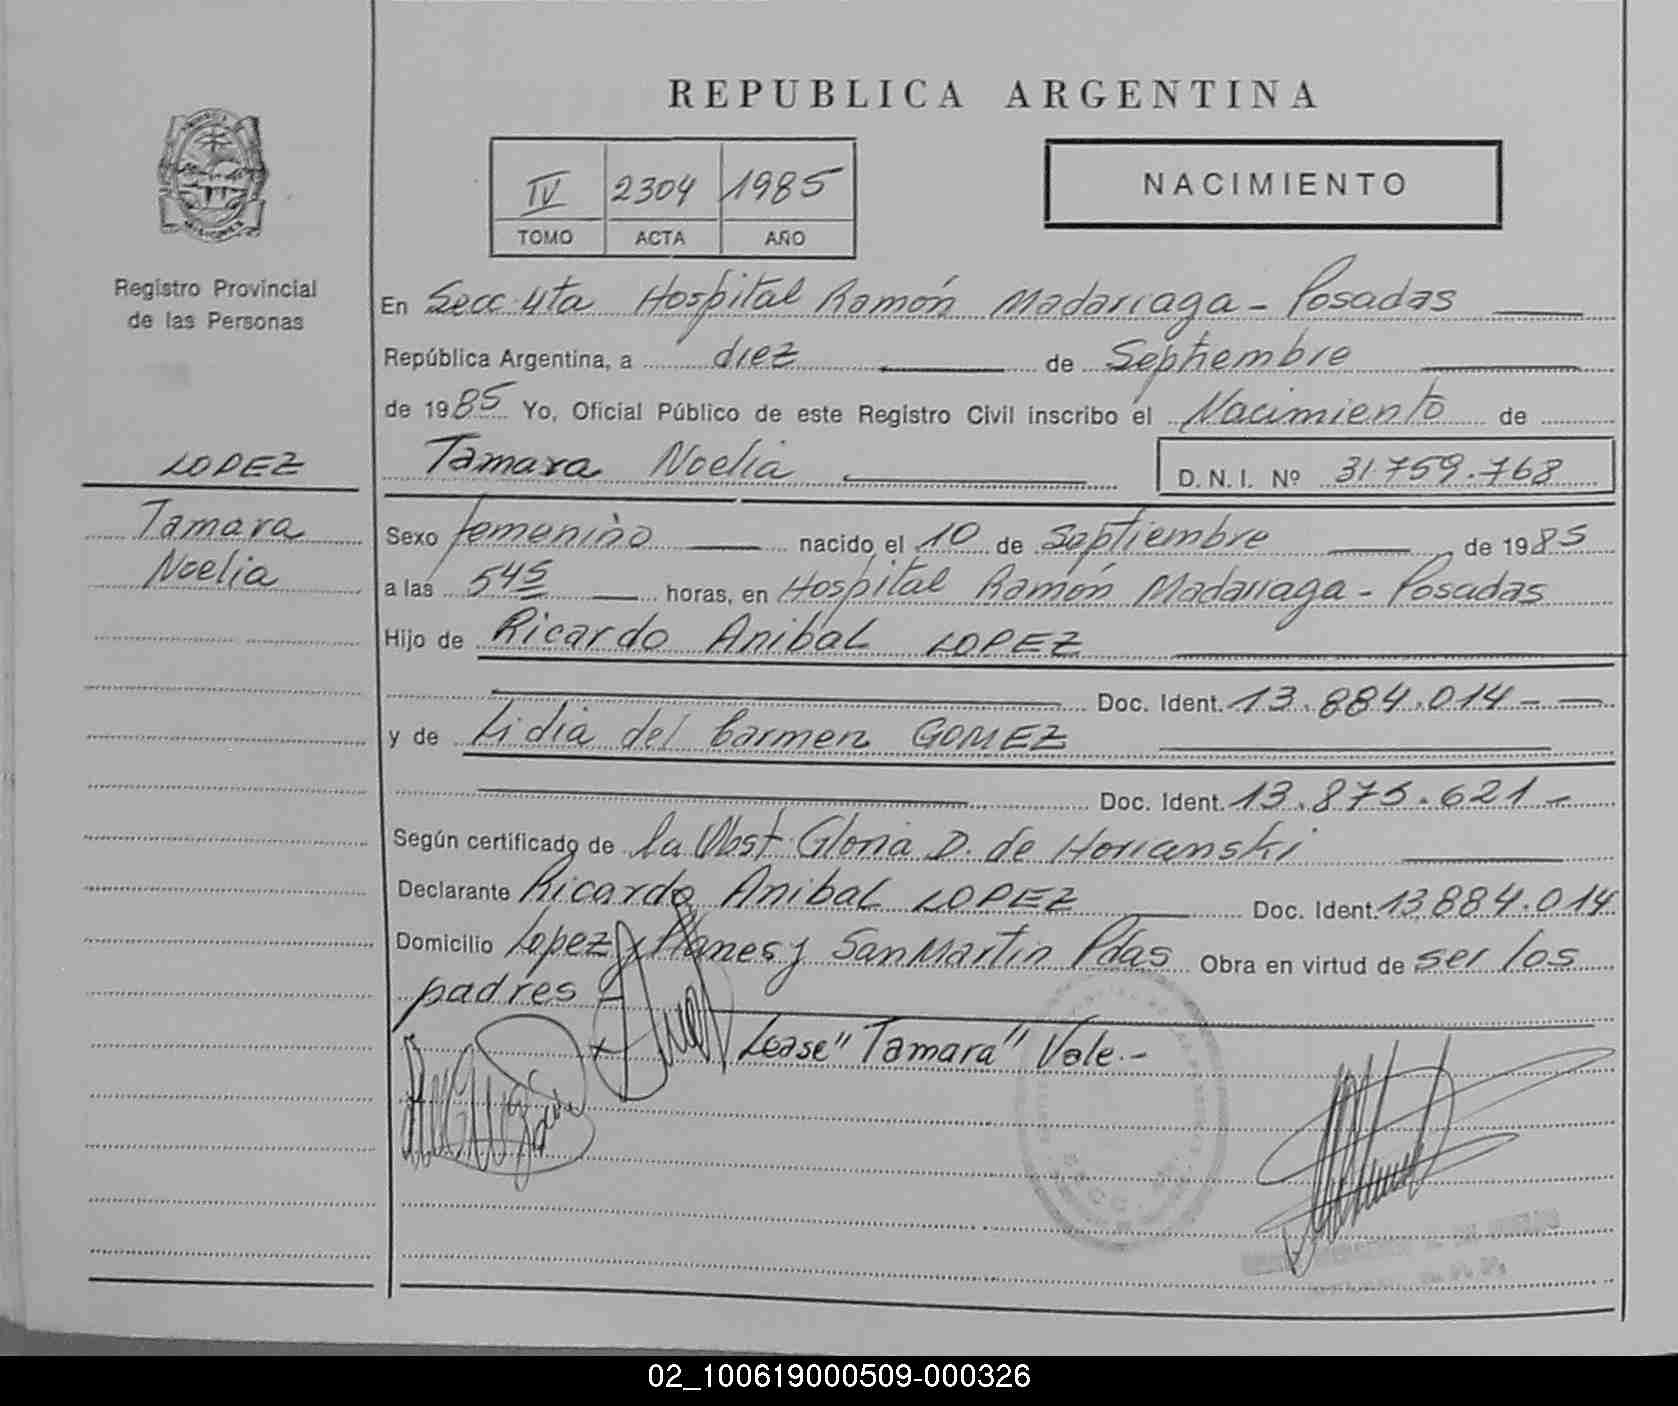 REPUBLICA ARGENTINA
IV 2304 1985
TOMO ACTA AÑO
NACIMIENTO
MISIONES
Registro Provincial
de las Personas
En Secc. 4ta Hospital Ramón Madariaga - Posadas
República Argentina, a diez de Septiembre
de 1985 Yo, Oficial Público de este Registro Civil inscribo el Nacimiento de
Tamara Noelia D. N. I. Nº 31.759.768
LOPEZ
Tamara
Noelia
Sexo femenino nacido el 10 de Septiembre de 1985
a las 545 horas, en Hospital Ramón Madariaga - Posadas
Hijo de Ricardo Anibal LOPEZ
Doc. Ident. 13.884.014 -
y de Lidia del Carmen GOMEZ
Doc. Ident. 13.875.621 -
Según certificado de la Obst. Gloria D. de Horianski
Declarante Ricardo Anibal LOPEZ Doc. Ident. 13.884.014
Domicilio Lopez y Planes y San Martin Pdas Obra en virtud de ser los
padres
Lease "Tamara" Vale.-
02_100619000509-000326